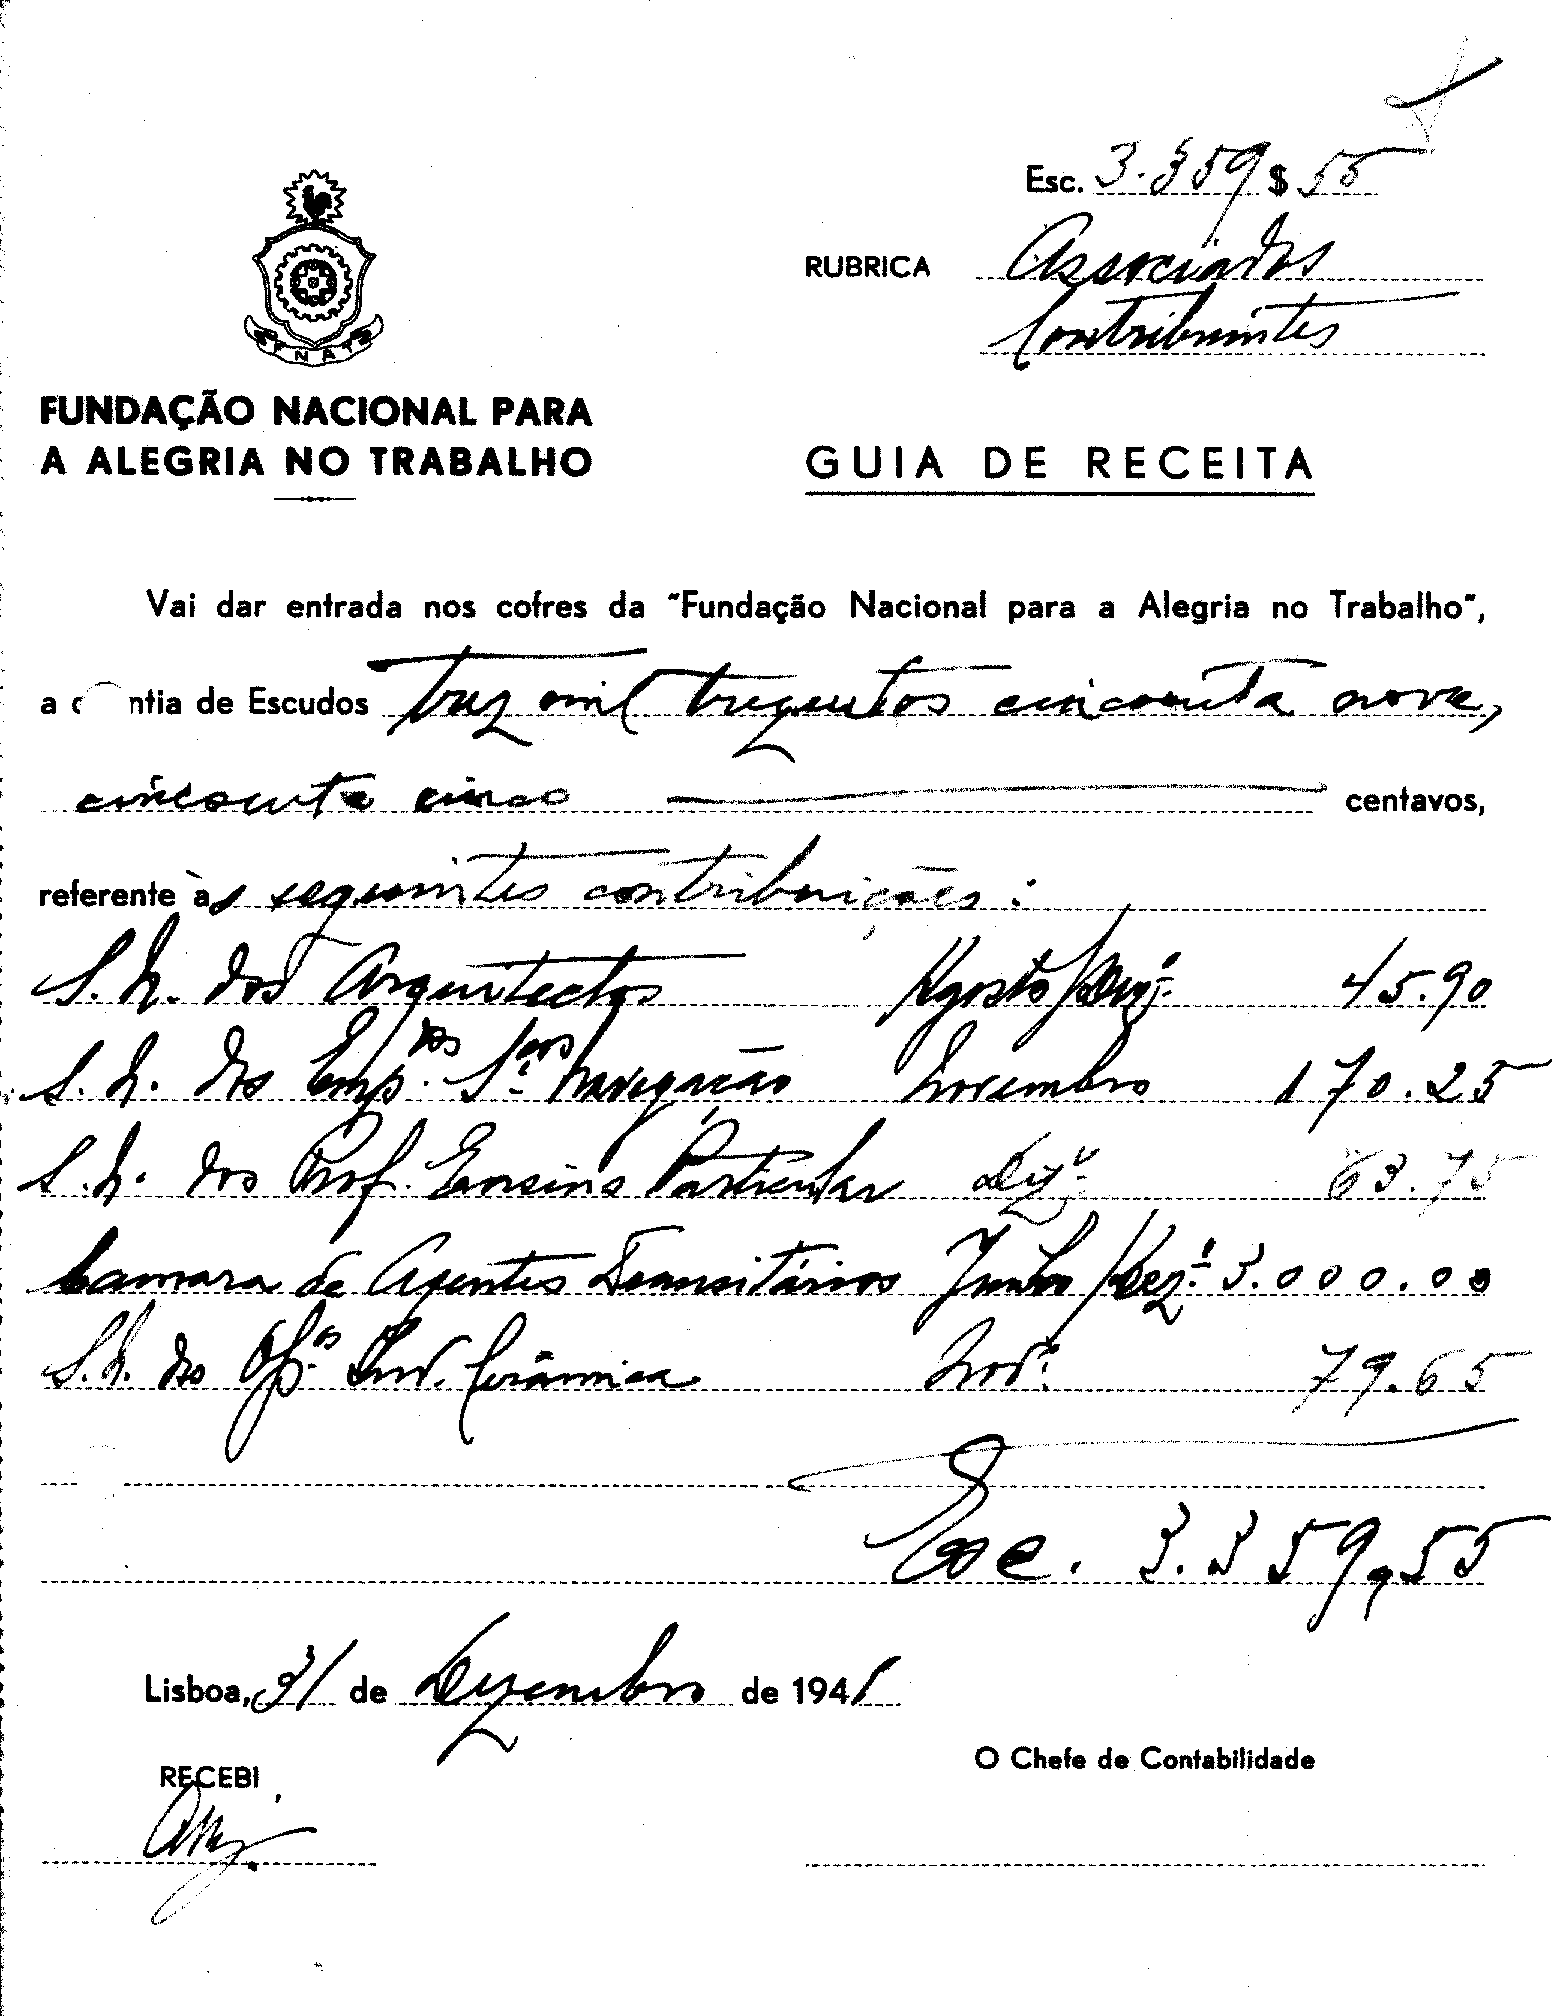 Esc. 3.359 $ 55
RUBRICA Associados
Contribuintes
FNAT
FUNDAÇÃO NACIONAL PARA
A ALEGRIA NO TRABALHO
GUIA DE RECEITA
Vai dar entrada nos cofres da "Fundação Nacional para a Alegria no Trabalho",
a ntia de Escudos trez mil trezentos cincoenta nove,
cincoenta cinco centavos,
referente às seguintes contribuições:
S. N. dos Arquitectos Agosto/Dezº. 45.90
S. N. dos Emp.dos Navegação Novembro 170.25
S. N. dos Prof. Ensino Particular Dezº. 63.75
Camara de Agentes Transitários Junho/Dezº. 3.000.00
S. N. dos Op.os Ind. Cerâmica Novº. 79.65
Esc. 3.359,55
Lisboa, 31 de Dezembro de 1941
RECEBI
O Chefe de Contabilidade